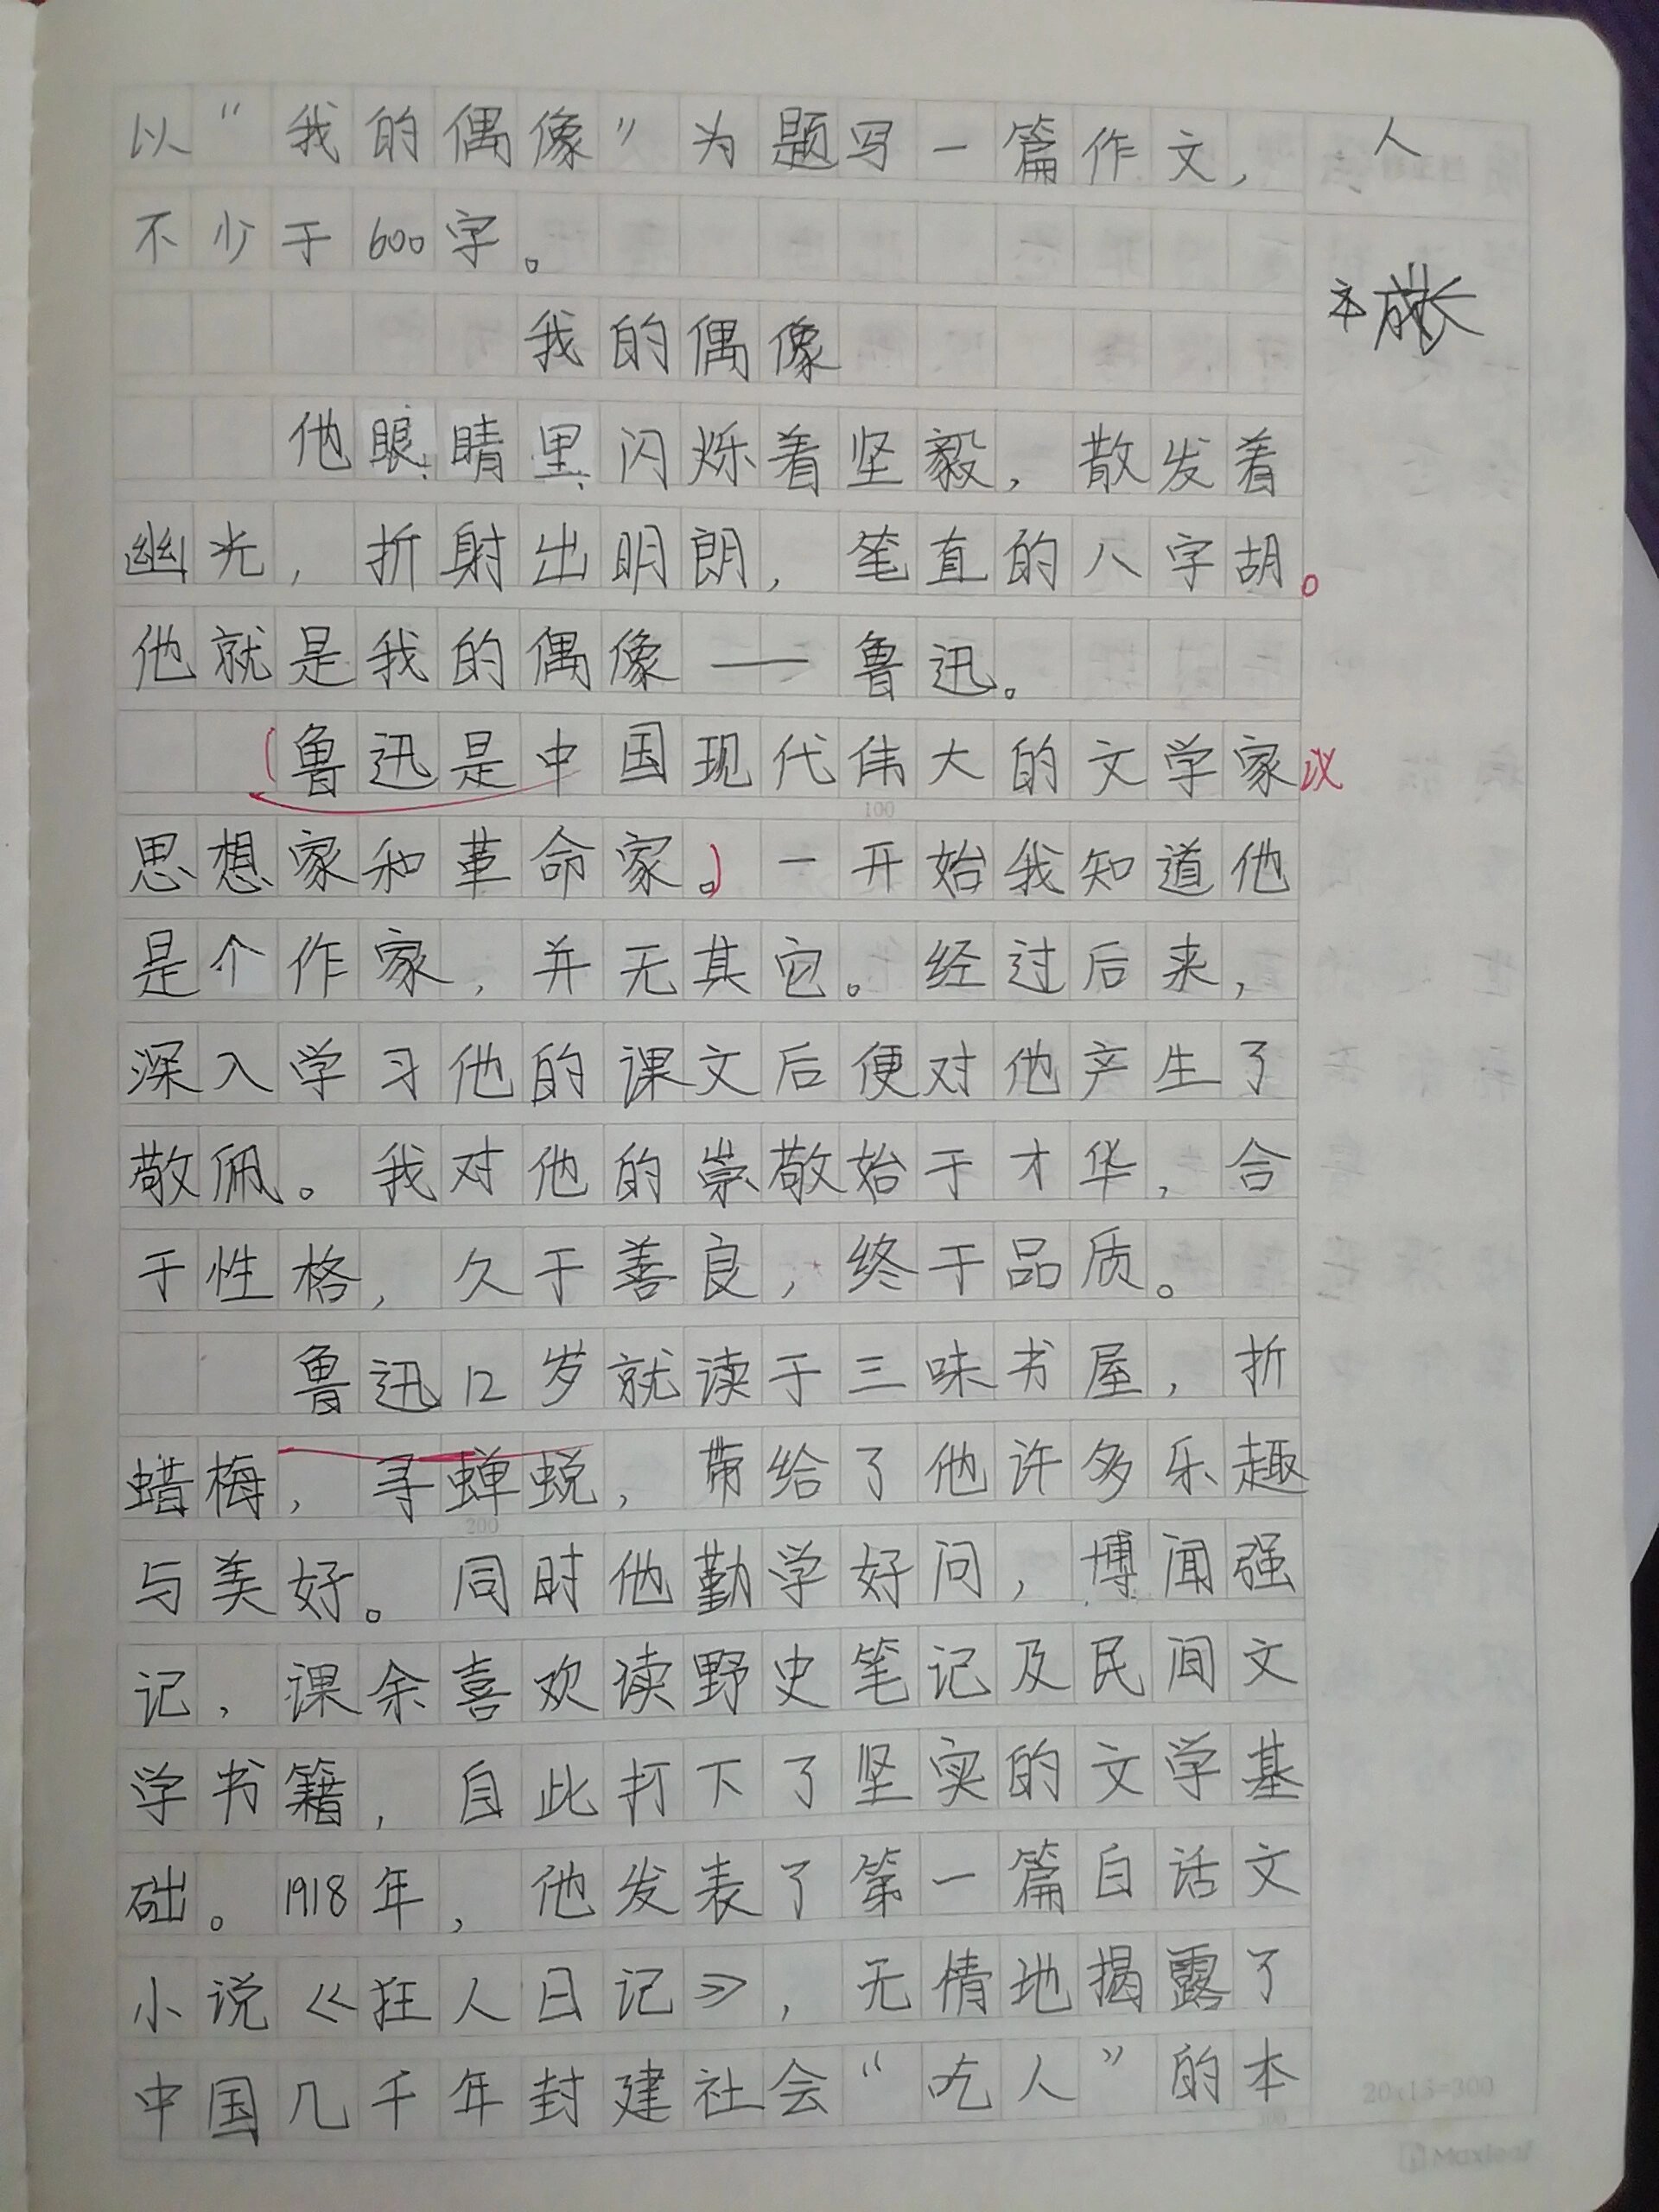 以“我的偶像”为题写一篇作文,
人
不少于600字。
成长
我的偶像
他眼睛里闪烁着坚毅,散发着
幽光,折射出明朗,笔直的八字胡。
他就是我的偶像——鲁迅。
(鲁迅是中国现代伟大的文学家
思想家和革命家。)一开始我知道他
是个作家,并无其它。经过后来,
深入学习他的课文后便对他产生了
敬佩。我对他的崇敬始于才华,合
于性格,久于善良,终于品质。
鲁迅12岁就读于三味书屋,折
蜡梅,寻蝉蜕,带给了他许多乐趣
与美好。同时他勤学好问,博闻强
记,课余喜欢读野史笔记及民间文
学书籍,自此打下了坚实的文学基
础。1918年,他发表了第一篇白话文
小说《狂人日记》,无情地揭露了
中国几千年封建社会“吃人”的本
100
200
300
20×15=300
Maxleaf